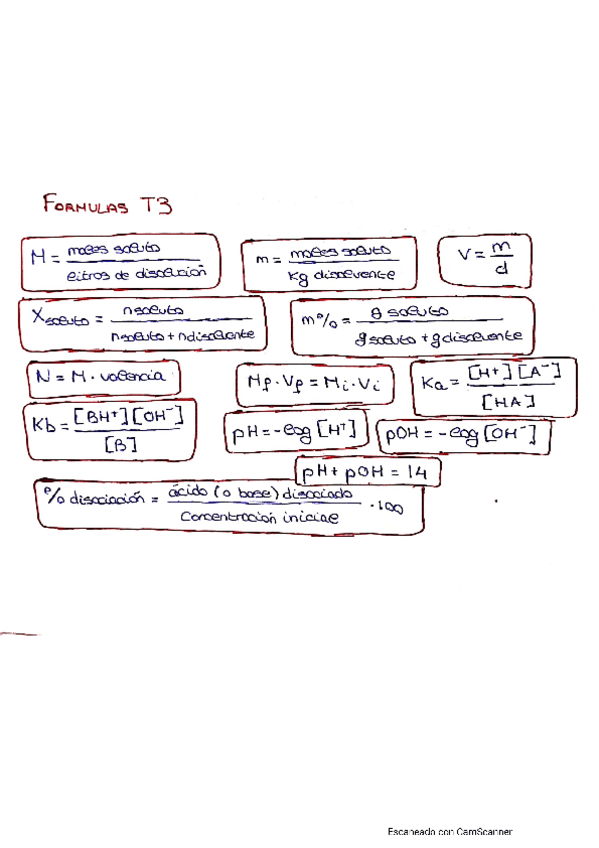 FORMULAS T3
M = moles soluto / litros de disolución
m = moles soluto / Kg disolvente
V = m / d
Xsoluto = nsoluto / nsoluto + ndisolvente
m% = g soluto / g soluto + g disolvente
N = M · valencia
Mf · Vf = Mi · Vi
Ka = [H+][A-] / [HA]
Kb = [BH+][OH-] / [B]
pH = -log [H+]
pOH = -log [OH-]
pH + pOH = 14
% disociación = ácido (o base) disociado / Concentración inicial · 100
Escaneado con CamScanner